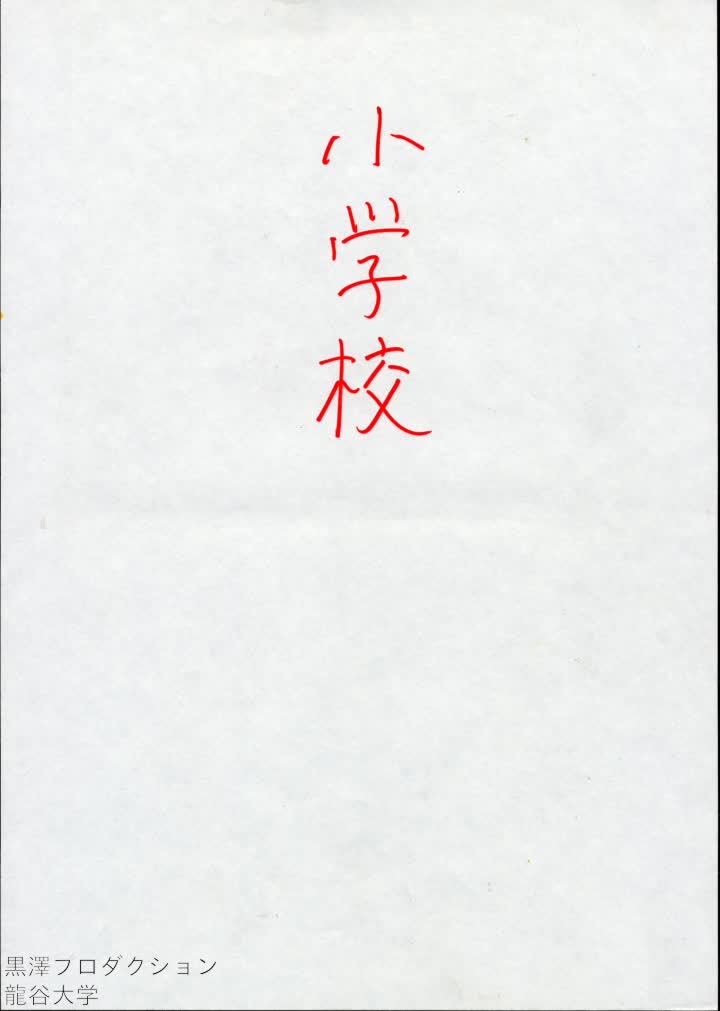 小学校
黒澤プロダクション
龍谷大学